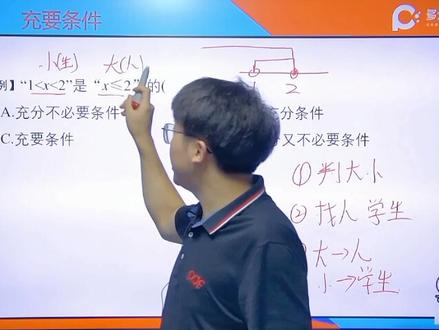 充要条件
小(生) 大(人)
例】“1<x<2”是“x≤2”的(
2
A.充分不必要条件
充分条件
C.充要条件
又不必要条件
①判大小
②找人 学生
大→人
小→学生